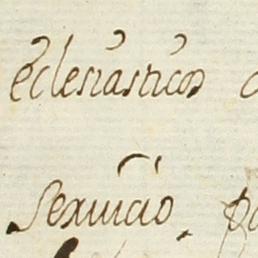 eclesiasticos
seruicio